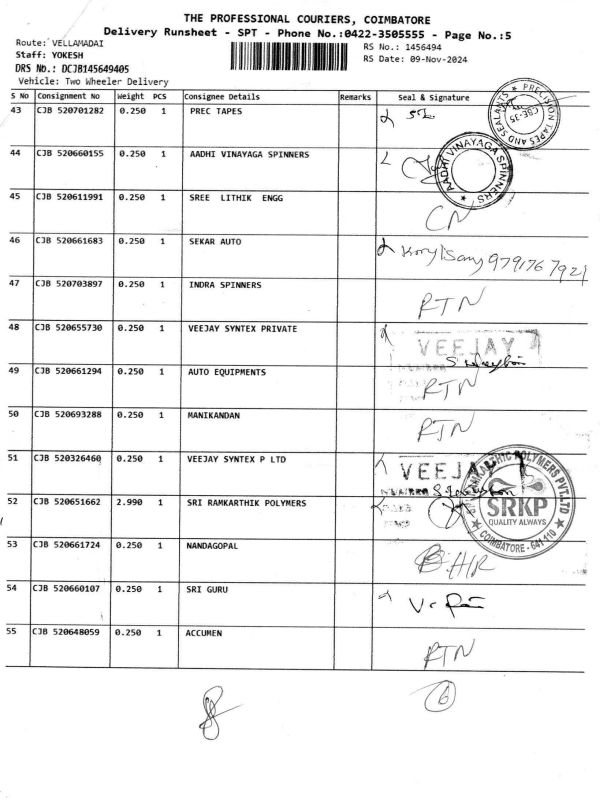 THE PROFESSIONAL COURIERS, COIMBATORE
Delivery Runsheet - SPT - Phone No.:0422-3505555 - Page No.:5
Route: VELLAMADAI
RS No.: 1456494
Staff: YOKESH
RS Date: 09-Nov-2024
DRS No.: DCJB145649405
Vehicle: Two Wheeler Delivery
S No Consignment No Weight PCS Consignee Details Remarks Seal & Signature
43 CJB 520701282 0.250 1 PREC TAPES
PRECISION TAPES AND SEALANTS CBE-35
44 CJB 520660155 0.250 1 AADHI VINAYAGA SPINNERS
AADHI VINAYAGA SPINNERS
45 CJB 520611991 0.250 1 SREE LITHIK ENGG CN
46 CJB 520661683 0.250 1 SEKAR AUTO 9791767921
47 CJB 520703897 0.250 1 INDRA SPINNERS RTN
48 CJB 520655730 0.250 1 VEEJAY SYNTEX PRIVATE VEEJAY
49 CJB 520661294 0.250 1 AUTO EQUIPMENTS RTN
50 CJB 520693288 0.250 1 MANIKANDAN RTN
51 CJB 520326460 0.250 1 VEEJAY SYNTEX P LTD VEEJAY
52 CJB 520651662 2.990 1 SRI RAMKARTHIK POLYMERS
SRI RAMKARTHIC POLYMERS PVT. LTD
SRKP
QUALITY ALWAYS
COIMBATORE - 641 110
53 CJB 520661724 0.250 1 NANDAGOPAL
54 CJB 520660107 0.250 1 SRI GURU
55 CJB 520648059 0.250 1 ACCUMEN RTN
6